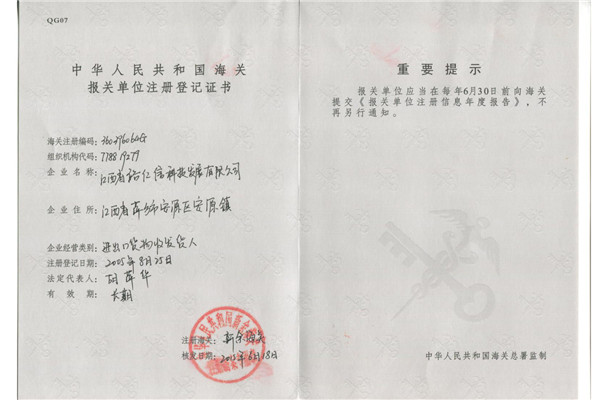 QG07
中华人民共和国海关
报关单位注册登记证书
海关注册编码:
组织机构代码: 778819279
企业名称: 江西省裕仁信科技发展有限公司
企业住所: 江西省萍乡市安源区安源镇
企业经营类别: 进出口货物收发货人
注册登记日期: 2005年8月25日
法定代表人: 胡萍华
有效期: 长期
注册海关: 新余海关
核发日期: 2015年6月18日
重要提示
报关单位应当在每年6月30日前向海关
提交《报关单位注册信息年度报告》,不
再另行通知。
中华人民共和国海关总署监制